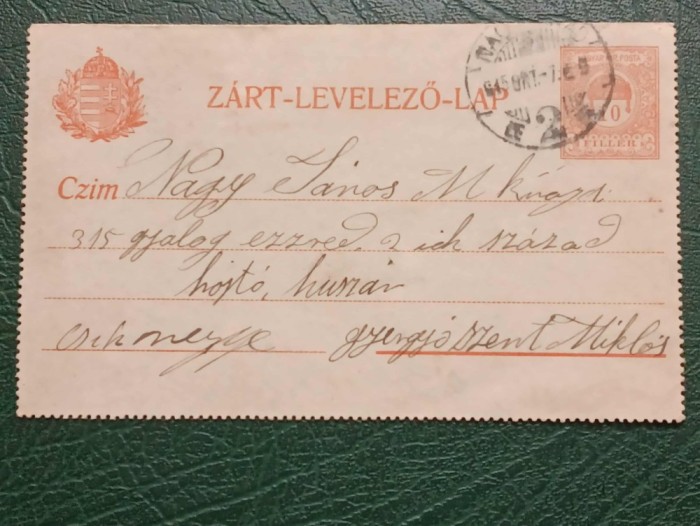 ZÁRT-LEVELEZŐ-LAP
10
FILLÉR
Czim Nagy János M
315 gyalog ezzred. 2 ik század
hojtó, huszár
Csikmegye gyergjószent Miklós